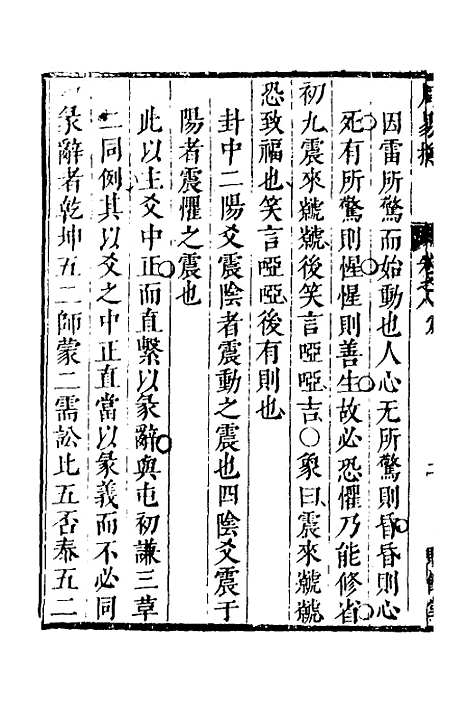 因雷所驚而始動也人心无所驚則昏昏則心
死有所驚則惺惺則善生故必恐懼乃能修省
初九震來虩虩後笑言啞啞吉○象曰震來虩虩
恐致福也笑言啞啞後有則也
卦中二陽爻震陰者震動之震也四陰爻震于
陽者震懼之震也
此以主爻中正而直繫以彖辭與屯初謙三革
二同例其以爻之中正直當以彖義而不必同
彖辭者乾坤五二師蒙二需訟比五否泰五二